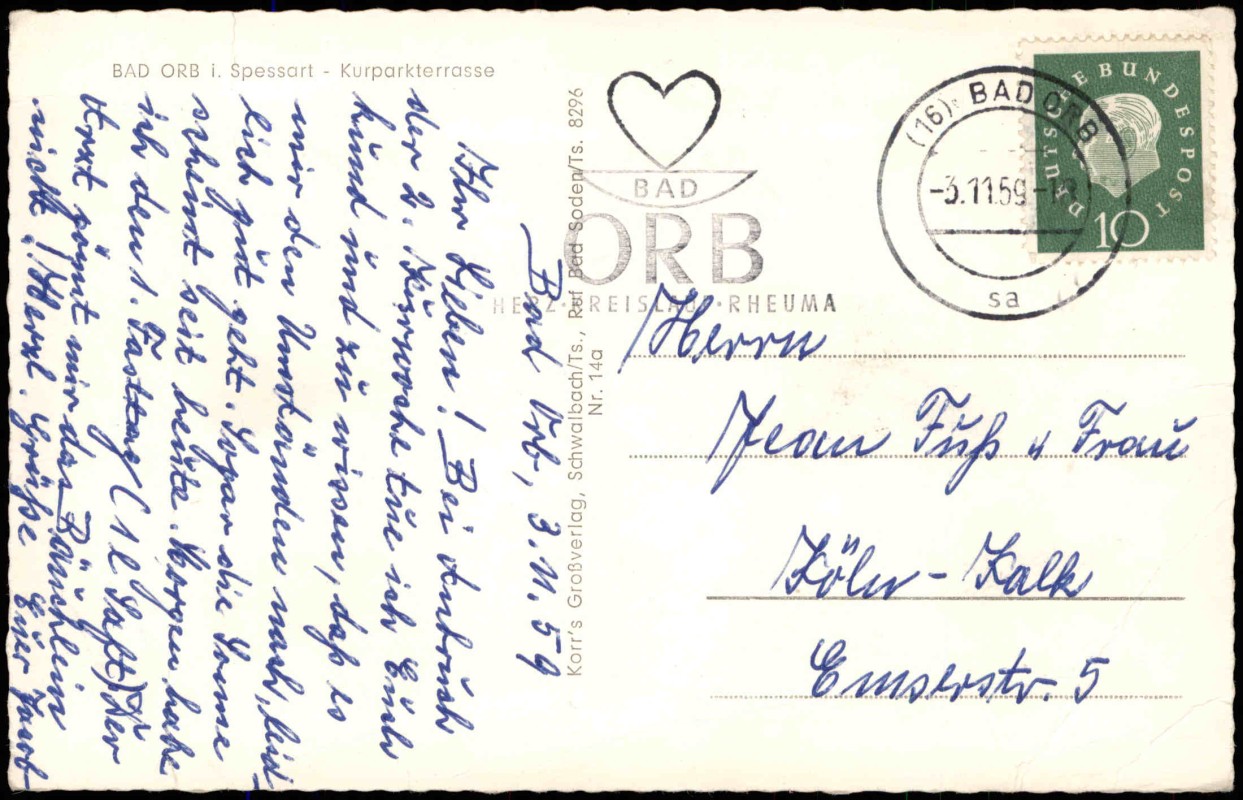 BAD ORB i. Spessart - Kurparkterrasse
Bad Orb, 3.11.59
Ihr Lieben! Bei Anbruch
der 2. Kurwoche tue ich Euch
kund und zu wissen, daß es
mir den Umständen nach leid-
lich gut geht. Sogar die Sonne
scheint seit heute. Morgen habe
ich den 1. Fasttag (1 l Saft) Der
Arzt gönnt mir das Bäuchlein
nicht! Herzl. Grüße Euer
Korr's Großverlag, Schwalbach/Ts., Ruf Bad Soden/Ts. 8296
Nr. 14a
BAD
ORB
HERZ·KREISLAUF·RHEUMA
(16) BAD ORB
-3.11.59-
sa
DEUTSCHE BUNDESPOST
10
Herrn
Jean Fuß u Frau
Köln-Kalk
Emserstr. 5